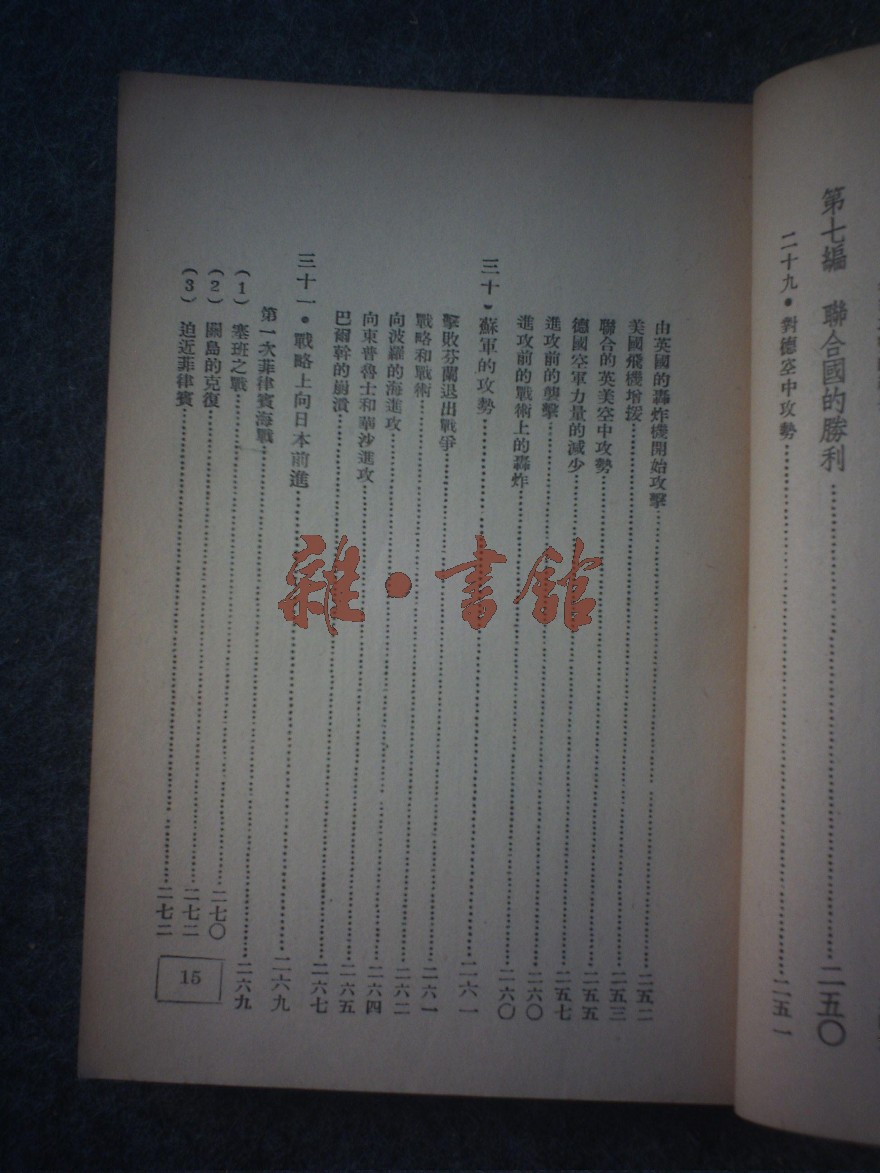 第七編　聯合國的勝利……二五〇
二十九・對德空中攻勢……二五一
由英國的轟炸機開始攻擊……二五二
美國飛機增援……二五三
聯合的英美空中攻勢……二五五
德國空軍力量的減少……二五七
進攻前的襲擊……二六〇
進攻前的戰術上的轟炸……二六〇
三十・蘇軍的攻勢……二六一
擊敗芬蘭退出戰爭……二六一
戰略和戰術……二六二
向波羅的海進攻……二六四
向東普魯士和華沙進攻……二六五
巴爾幹的崩潰……二六七
三十一・戰略上向日本前進……二六九
第一次菲律賓海戰……二六九
(1) 塞班之戰……二七〇
(2) 關島的克復……二七二
(3) 迫近菲律賓……二七二
15
雜・書館